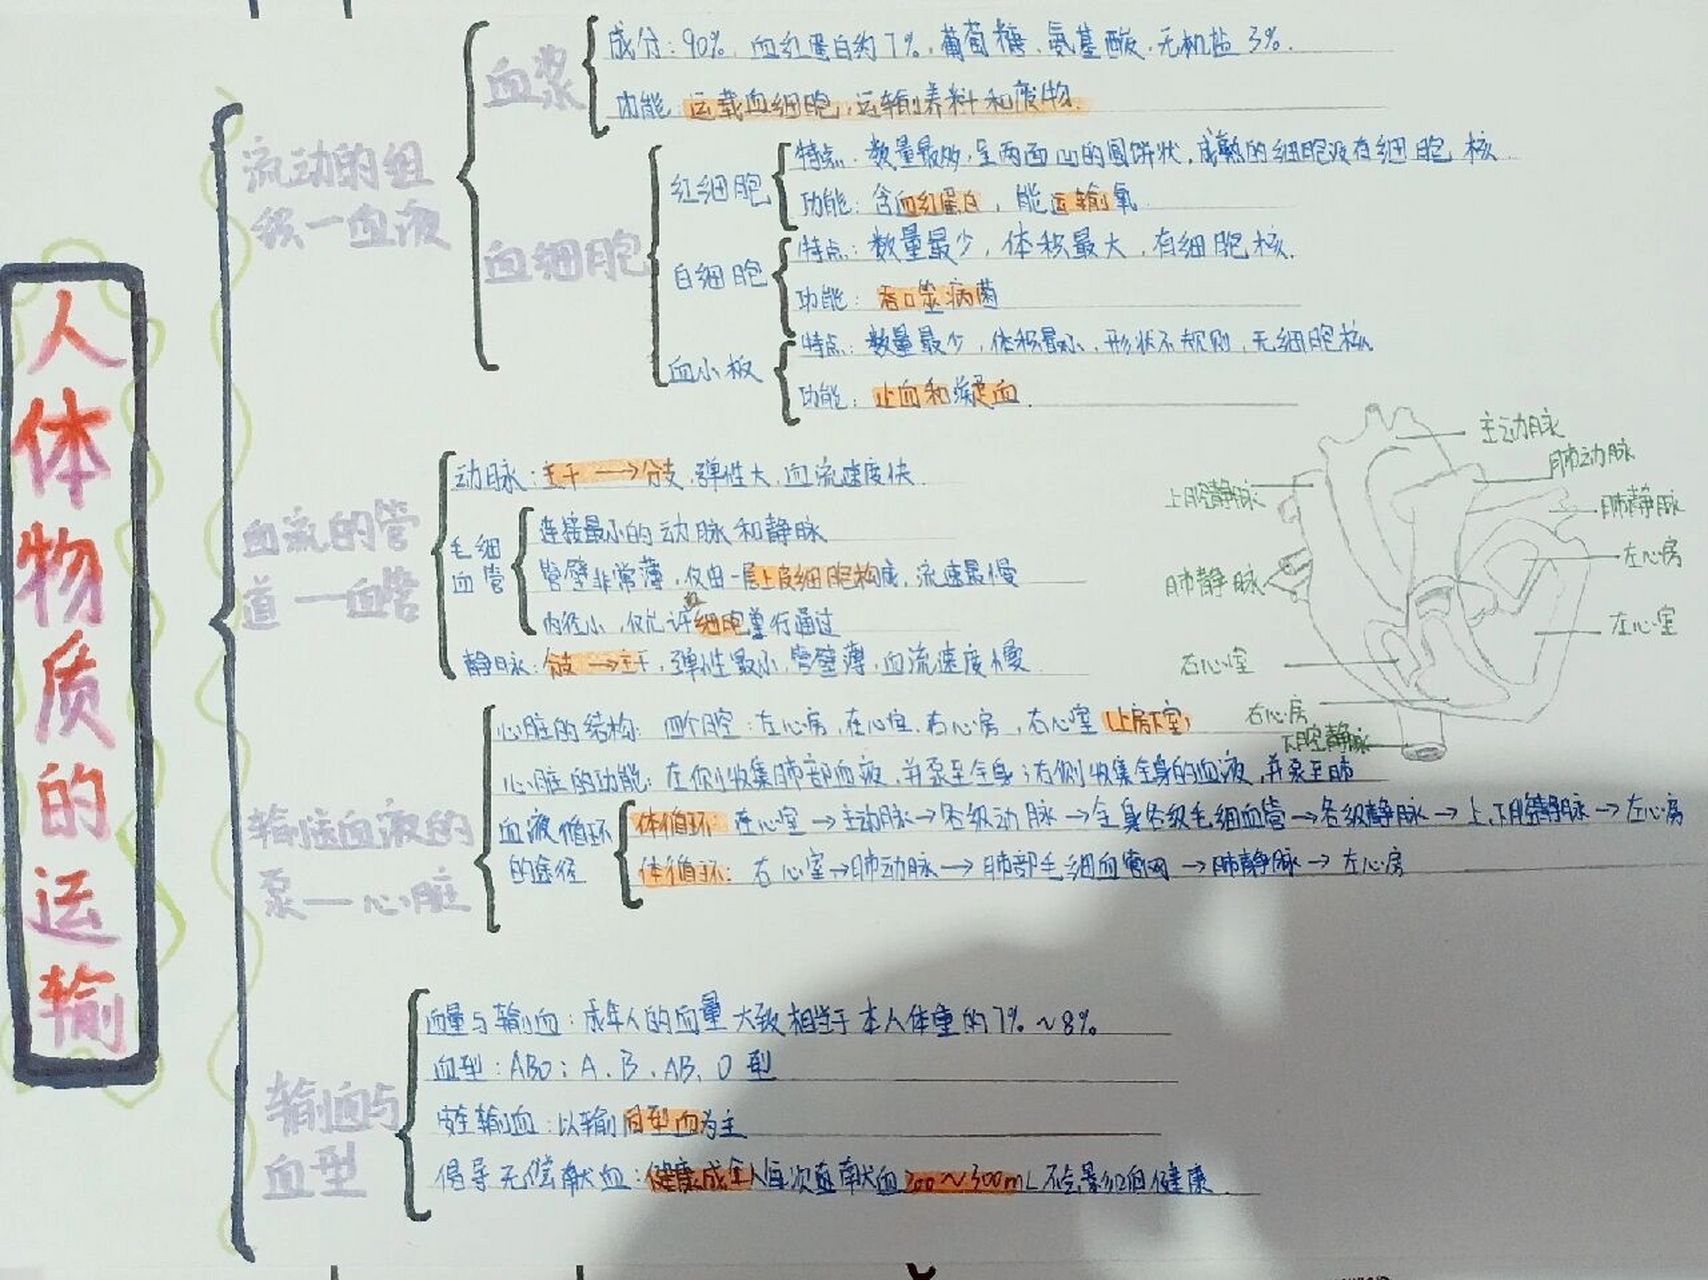 人体物质的运输
流动的组
织—血液
血浆
成分：90%，血红蛋白约7%，葡萄糖、氨基酸、无机盐3%.
功能：运载血细胞，运输养料和废物.
血细胞
红细胞
特点：数量最多，呈两面凹的圆饼状，成熟的细胞没有细胞核.
功能：含血红蛋白，能运输氧
白细胞
特点：数量最少，体积最大，有细胞核.
功能：吞噬病菌
血小板
特点：数量最少，体积最小，形状不规则，无细胞核
功能：止血和凝血.
血流的管
道—血管
动脉：主干→分支，弹性大，血流速度快.
毛细
血管
连接最小的动脉和静脉
管壁非常薄，仅由一层上皮细胞构成，流速最慢
内径小，仅允许红细胞单行通过
静脉：分支→主干，弹性最小，管壁薄，血流速度慢
主动脉
肺动脉
上腔静脉
肺静脉
左心房
肺静脉
左心室
右心室
右心房
下腔静脉
输送血液的
泵—心脏
心脏的结构：四个腔：左心房，左心室，右心房，右心室（上房下室）
心脏的功能：左侧收集肺部血液，并泵至全身；右侧收集全身的血液，并泵至肺
血液循环
的途径
体循环：左心室→主动脉→各级动脉→全身各级毛细血管→各级静脉→上、下腔静脉→左心房
体循环：右心室→肺动脉→肺部毛细血管网→肺静脉→左心房
输血与
血型
血量与输血：成年人的血量大致相当于本人体重的7%~8%
血型：ABO：A、B、AB、O型
安全输血：以输同型血为主
倡导无偿献血：健康成年人每次献血200~300mL不会影响健康